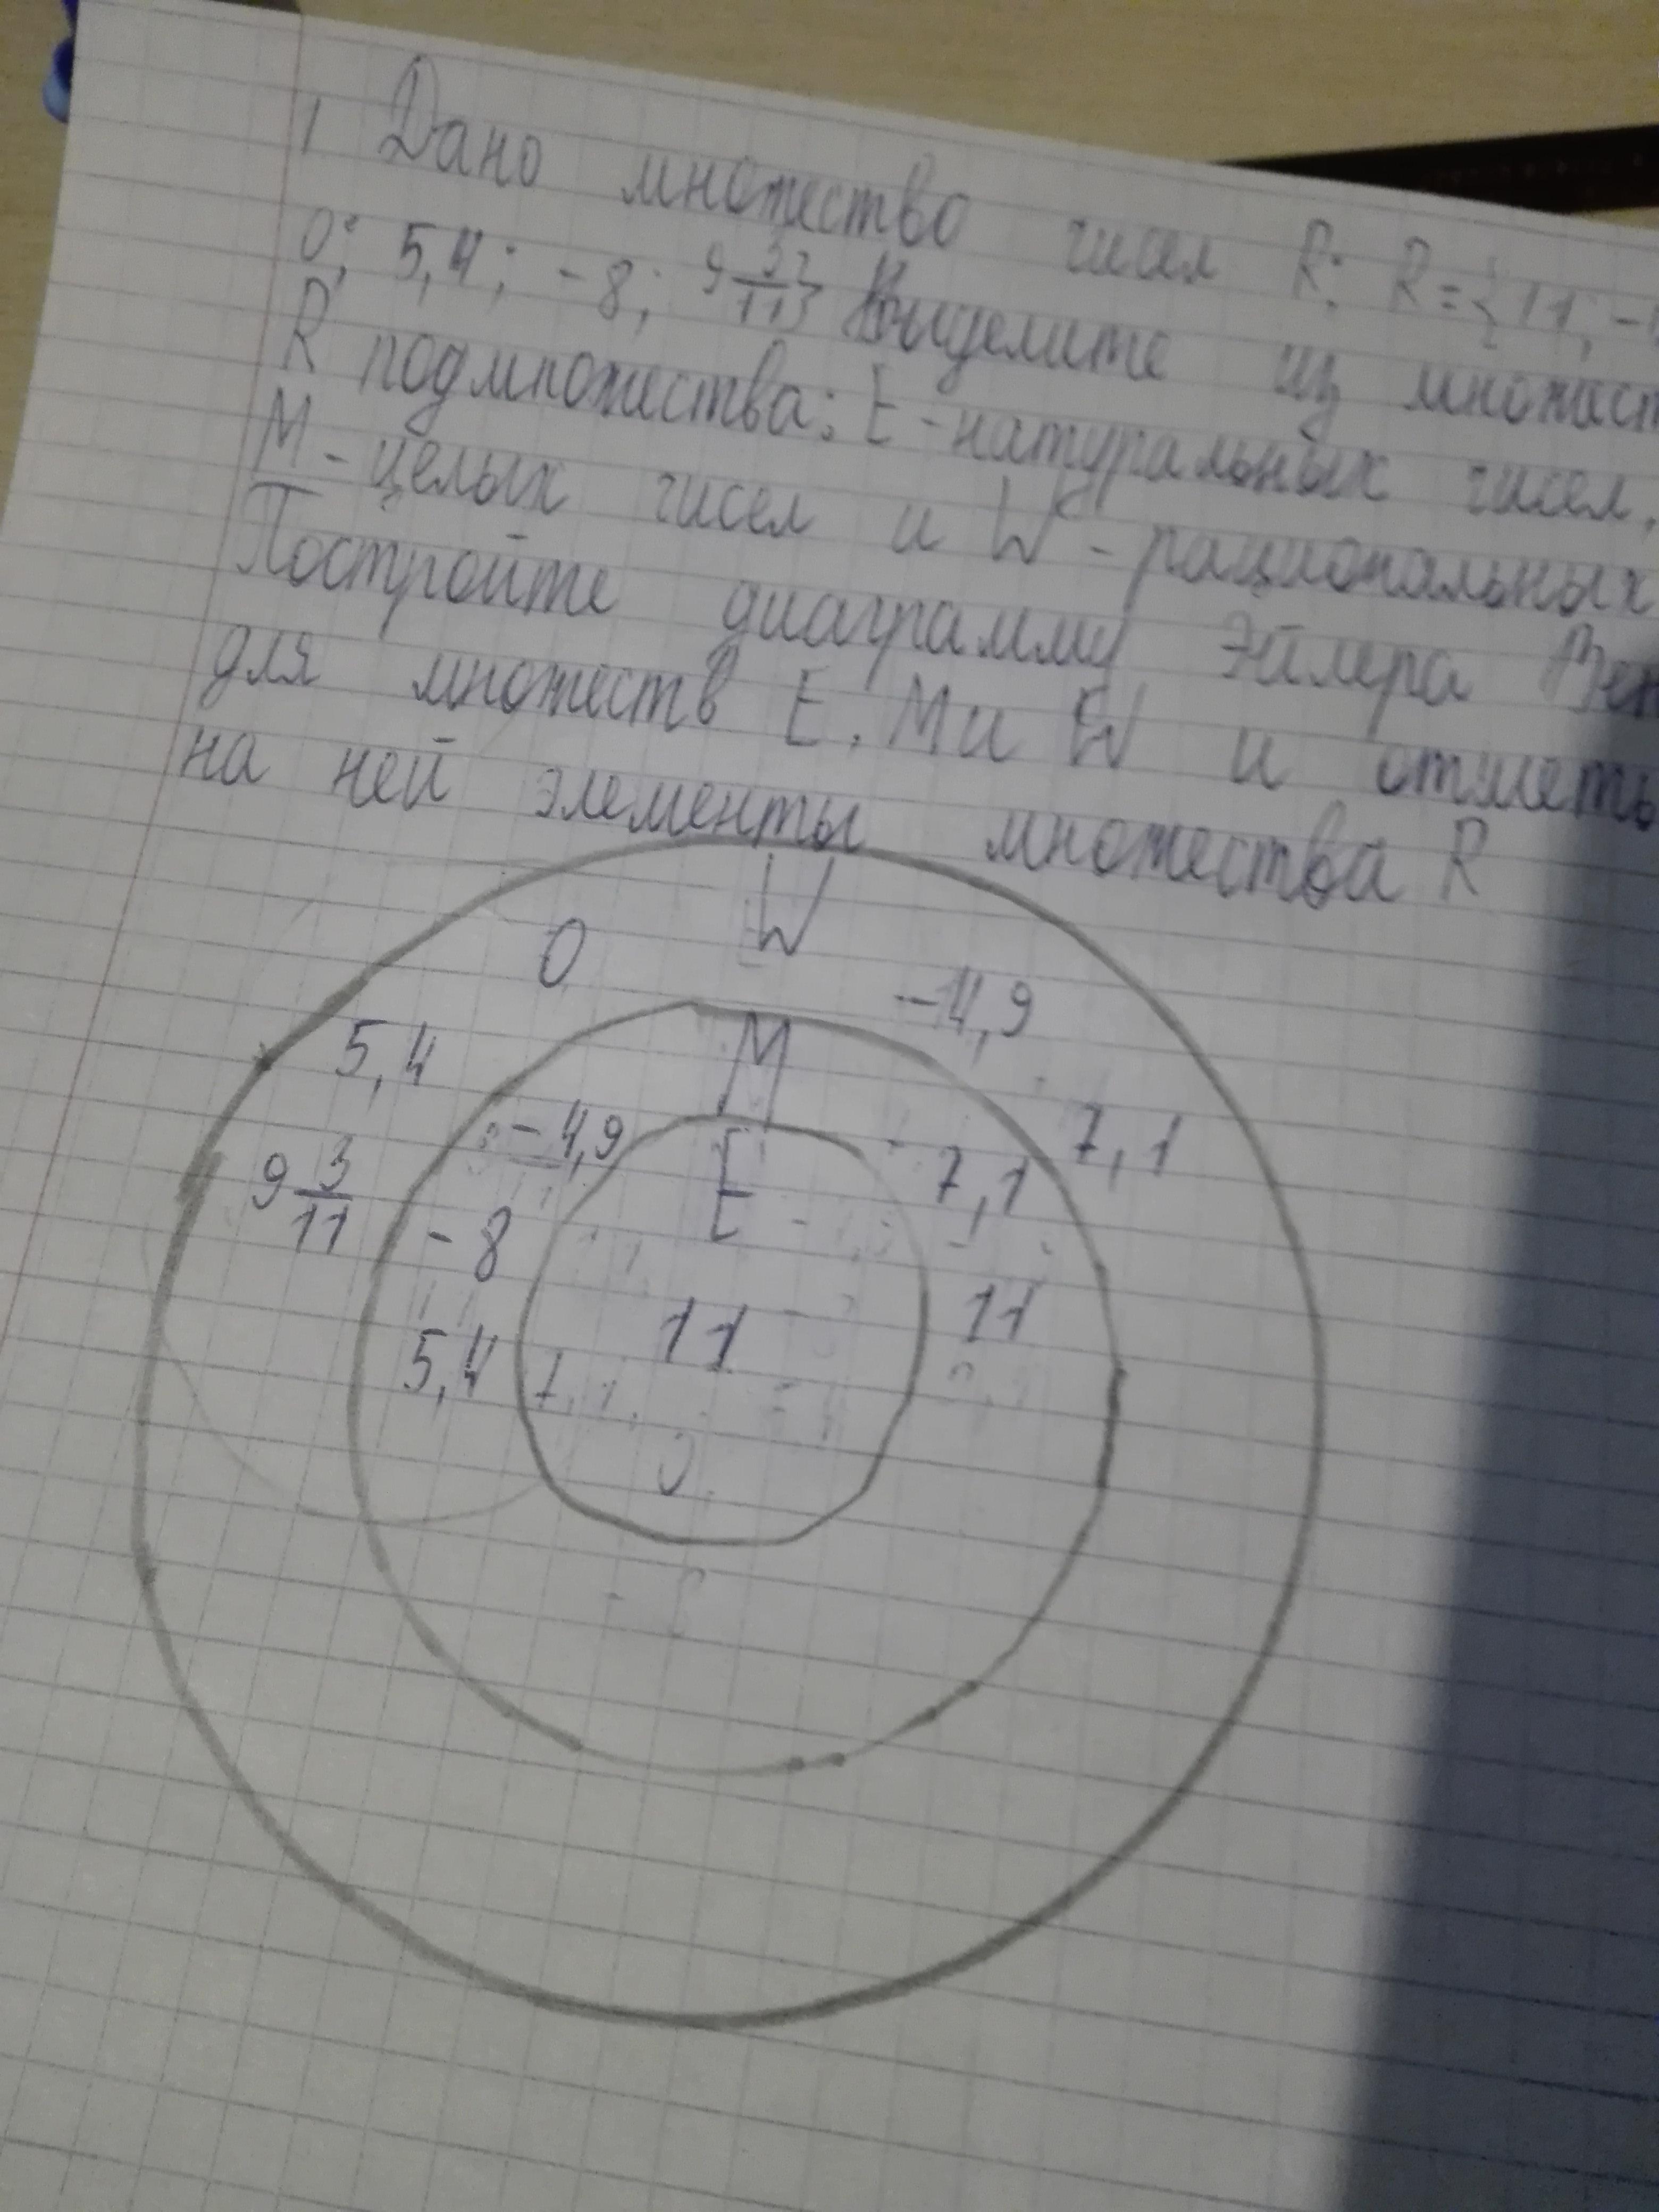 1 Дано множество чисел R: R={11; -
0; 5,4; -8; 9 3/11} Выделите из множест
R подмножества: E-натуральных чисел,
M-целых чисел и W-рациональных
Постройте диаграмму Эйлера Вен
для множеств E, M и W и отметь
на ней элементы множества R
W
0
-4,9
M
5,4
-4,9
7,1
E
7,1
9 3/11
-8
11
11
5,4